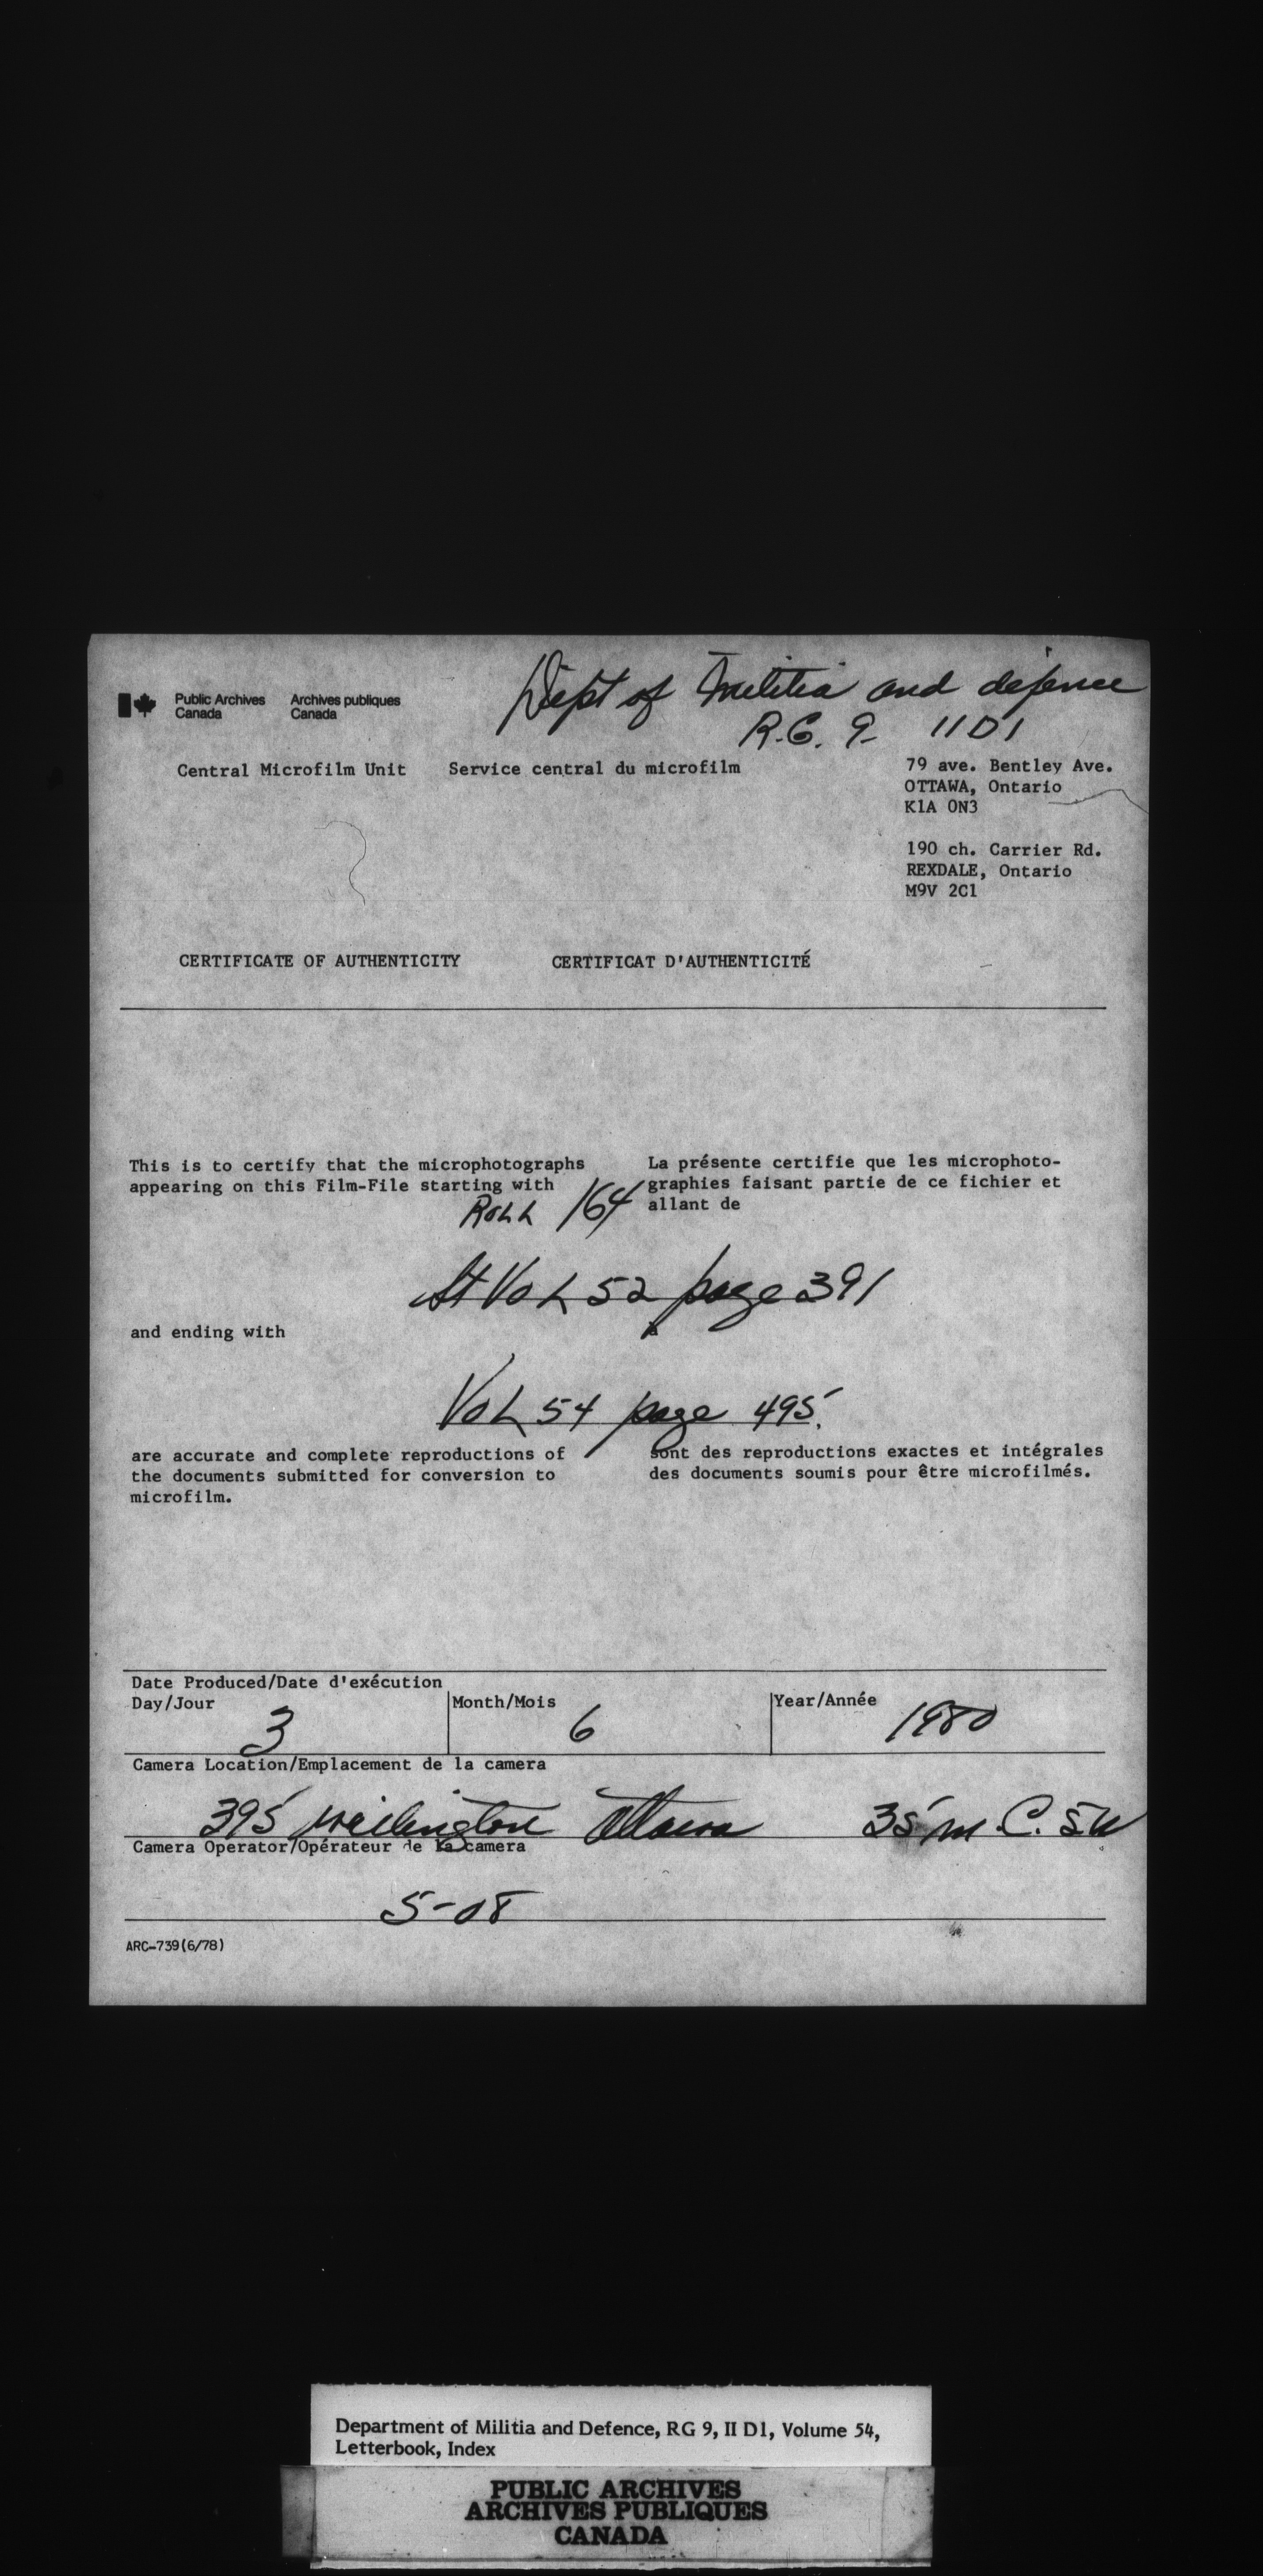 Dept of Militia and defence
R.G. 9- 11D1
Public Archives Canada
Archives publiques Canada
Central Microfilm Unit Service central du microfilm
79 ave. Bentley Ave.
OTTAWA, Ontario
K1A 0N3
190 ch. Carrier Rd.
REXDALE, Ontario
M9V 2C1
CERTIFICATE OF AUTHENTICITY CERTIFICAT D'AUTHENTICITÉ
This is to certify that the microphotographs
appearing on this Film-File starting with
La présente certifie que les microphoto-
graphies faisant partie de ce fichier et
allant de
RoLL 164
St VoL 52 page 391
and ending with
VoL 54 page 495
are accurate and complete reproductions of
the documents submitted for conversion to
microfilm.
sont des reproductions exactes et intégrales
des documents soumis pour être microfilmés.
Date Produced/Date d'exécution
Day/Jour 3 Month/Mois 6 Year/Année 1980
Camera Location/Emplacement de la camera
395 wellington Ottawa 35 m.
Camera Operator/Opérateur de la camera
5-08
ARC-739(6/78)
Department of Militia and Defence, RG 9, II D1, Volume 54,
Letterbook, Index
PUBLIC ARCHIVES
ARCHIVES PUBLIQUES
CANADA